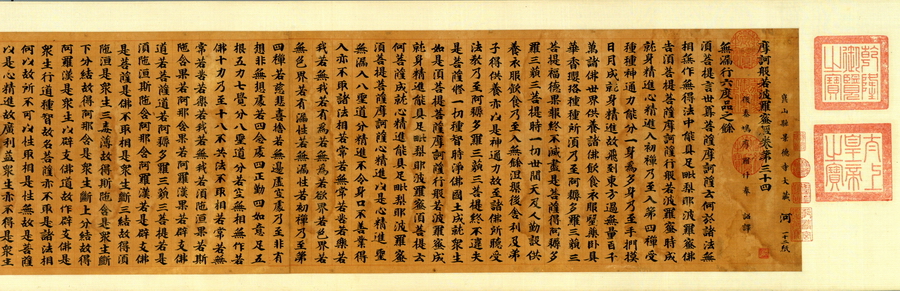 大藏 河
摩訶般若波羅蜜經卷第三十四
姚秦鳩摩羅什奉 詔譯
無漏行六度品之餘
須菩提言世尊菩薩摩訶薩云何於諸法無
相無作無得法中能具足毗梨耶波羅蜜佛
告須菩提菩薩摩訶薩行般若波羅蜜時成
就身精進心精進入初禪乃至入第四禪受
種種神通力能分一身為多身乃至手捫摸
日月成就身精進故飛到東方過無量百千
萬諸佛世界供養諸佛飲食衣服醫藥臥具
華香瓔珞種種所須乃至阿耨多羅三藐三
菩提福德果報終不滅盡是菩薩得阿耨多
羅三藐三菩提時一切世間天及人勤設供
養衣服飲食乃至入無餘涅槃後舍利及弟
子得供養亦以是神通力故至諸佛所聽受
法教乃至阿耨多羅三藐三菩提終不違失
是菩薩修一切種智時淨佛國土成就眾生
如是須菩提菩薩摩訶薩行般若波羅蜜成
就身精進能具足毗梨耶波羅蜜須菩提云
何菩薩成就心精進能具足毗梨耶波羅蜜
須菩提菩薩摩訶薩心精進以是心精進聖
無漏入八聖道分精進不令身口不善業得
入亦不取諸法相若常若無常若苦若樂若
我若無我若有為若無為若欲界若色界若
無色界若有漏性若無漏性若初禪乃至第
四禪若慈悲喜捨若無邊虛空處乃至非有
想非無想處若四念處四正勤四如意足五
根五力七覺分八聖道分若空無相無作若
佛十力乃至十八不共法不取相若常若無
常若苦若樂若我若無我若須陀洹果若斯
陀含果若阿那含果若阿羅漢果若辟支佛
道若菩薩道若阿耨多羅三藐三菩提若是
須陀洹斯陀含阿那含阿羅漢若是辟支佛
是菩薩是佛不取相是眾生斷三結故得須
陀洹是眾生三毒薄故得斯陀含是眾生斷
下分結故得阿那含是眾生斷上分結故得
阿羅漢是眾生以辟支佛道故作辟支佛是
眾生行道種智故名菩薩亦不取是諸法相
何以故所不可以性取相是性無故是菩薩
以是心精進故廣利益眾生亦不得是眾生
乾隆御覽之寶
太上皇帝之寶